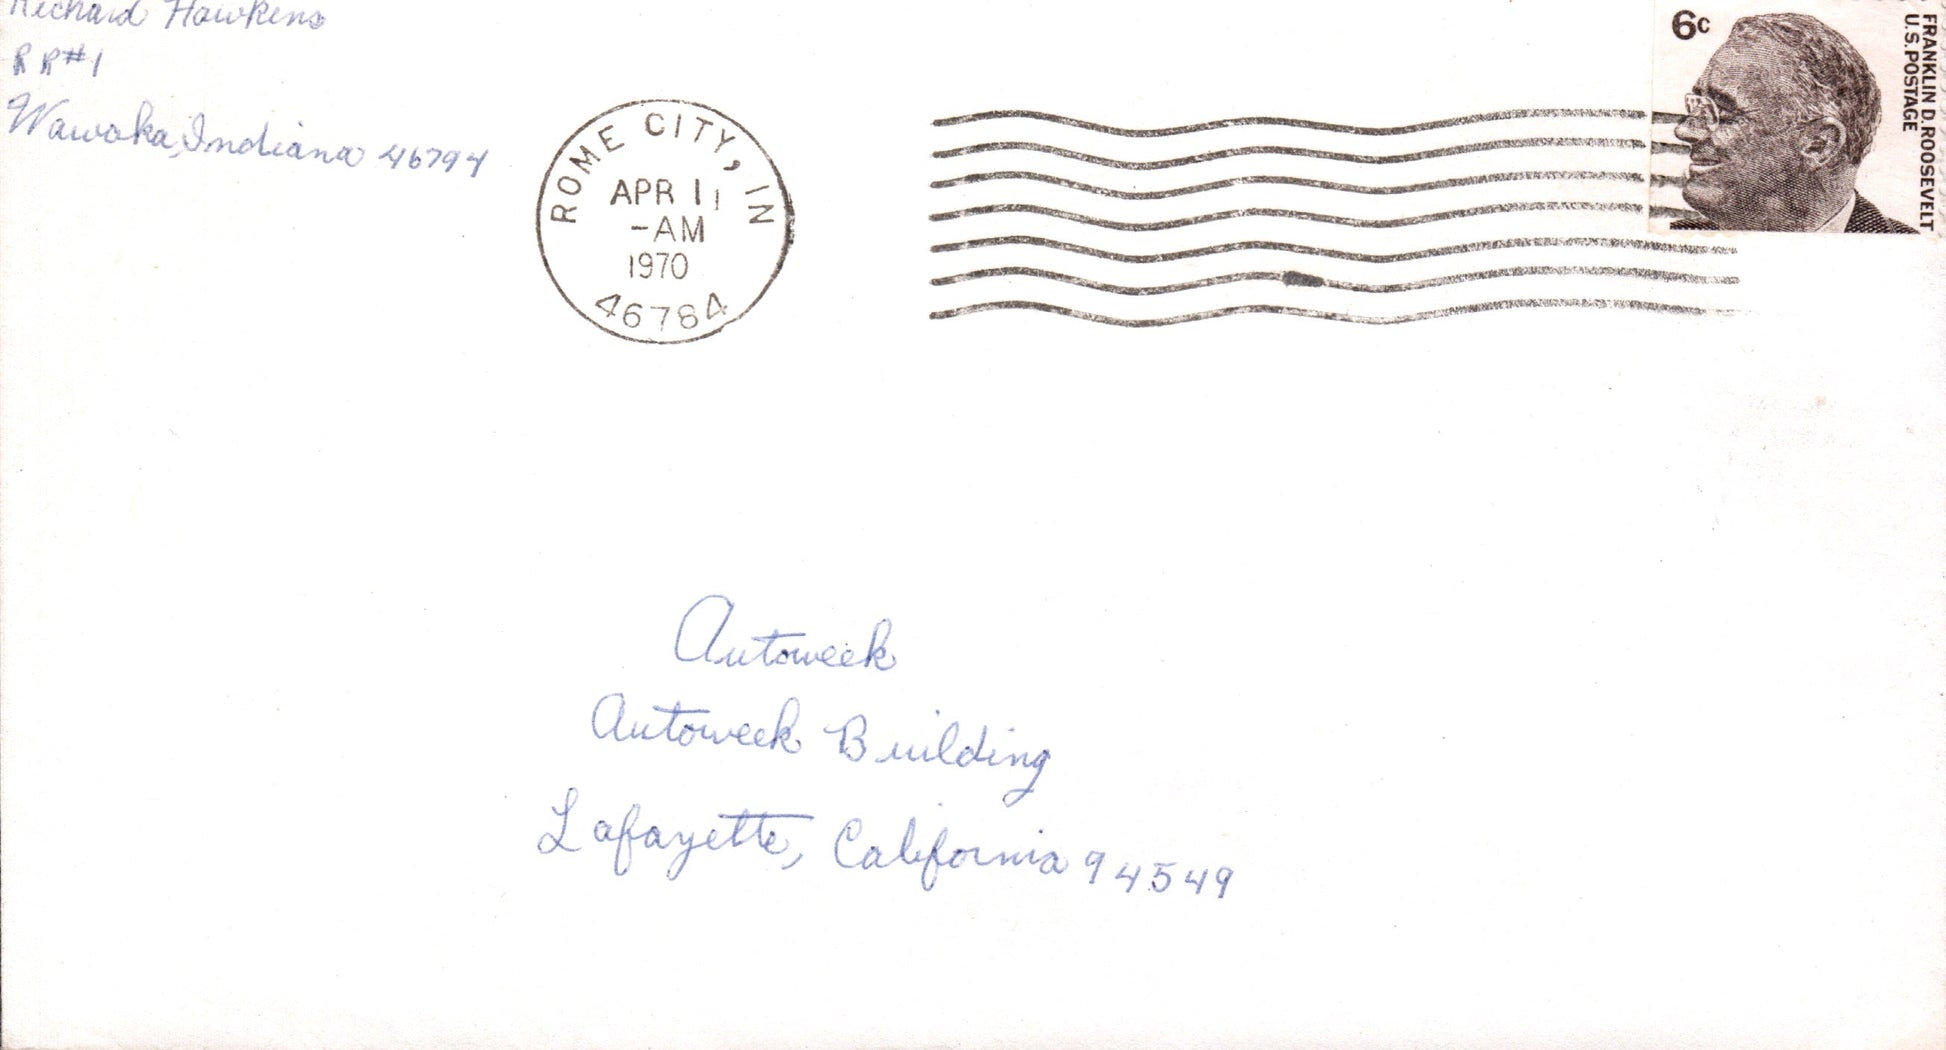 Richard Hawkins
RR#1
Wawaka, Indiana 46794
ROME CITY, IN
APR 11
-AM
1970
46784
6c
FRANKLIN D. ROOSEVELT
U.S. POSTAGE
Autoweek
Autoweek Building
Lafayette, California 94549